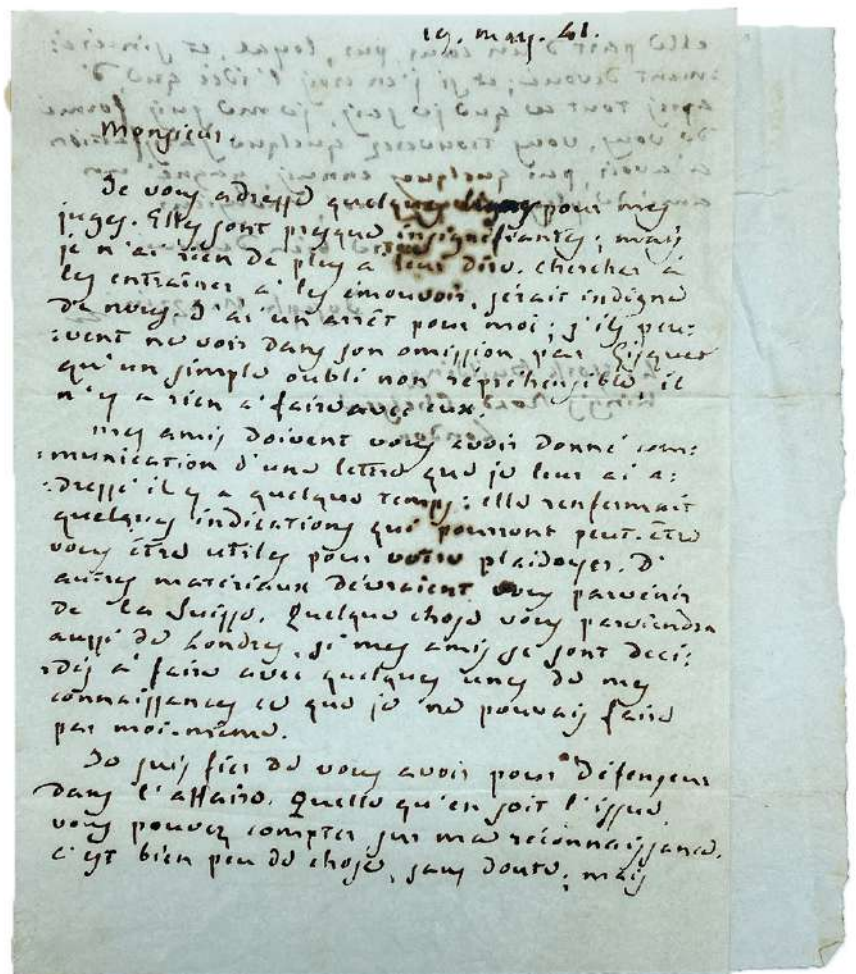 19. mars. 41.
Monsieur.
Je vous adresse quelques lignes pour mes
juges. Elles sont presque insignifiantes; mais
je n'ai rien de plus à leur dire. Chercher à
les entraîner à les émouvoir, serait indigne
de nous. J'ai un arrêt pour moi; s'ils peu:
:vent ne voir dans son omission par Gisquet
qu'un simple oubli non repréhensible il
n'y a rien à faire avec eux.
Mes amis doivent vous avoir donné com:
:munication d'une lettre que je leur ai a:
:dressé il y a quelque temps: elle renfermait
quelques indications qui pourront peut-être
vous être utiles pour votre plaidoyer. D'
autres matériaux devraient vous parvenir
de la Suisse. Quelque chose vous parviendra
aussi de Londres, si mes amis se sont deci:
:dés à faire avec quelques unes de mes
connaissances ce que je ne pouvais faire
par moi-même.
Je suis fier de vous avoir pour défenseur
dans l'affaire. Quelle qu'en soit l'issue,
vous pouvez compter sur ma reconnaissance.
c'est bien peu de chose, sans doute; mais